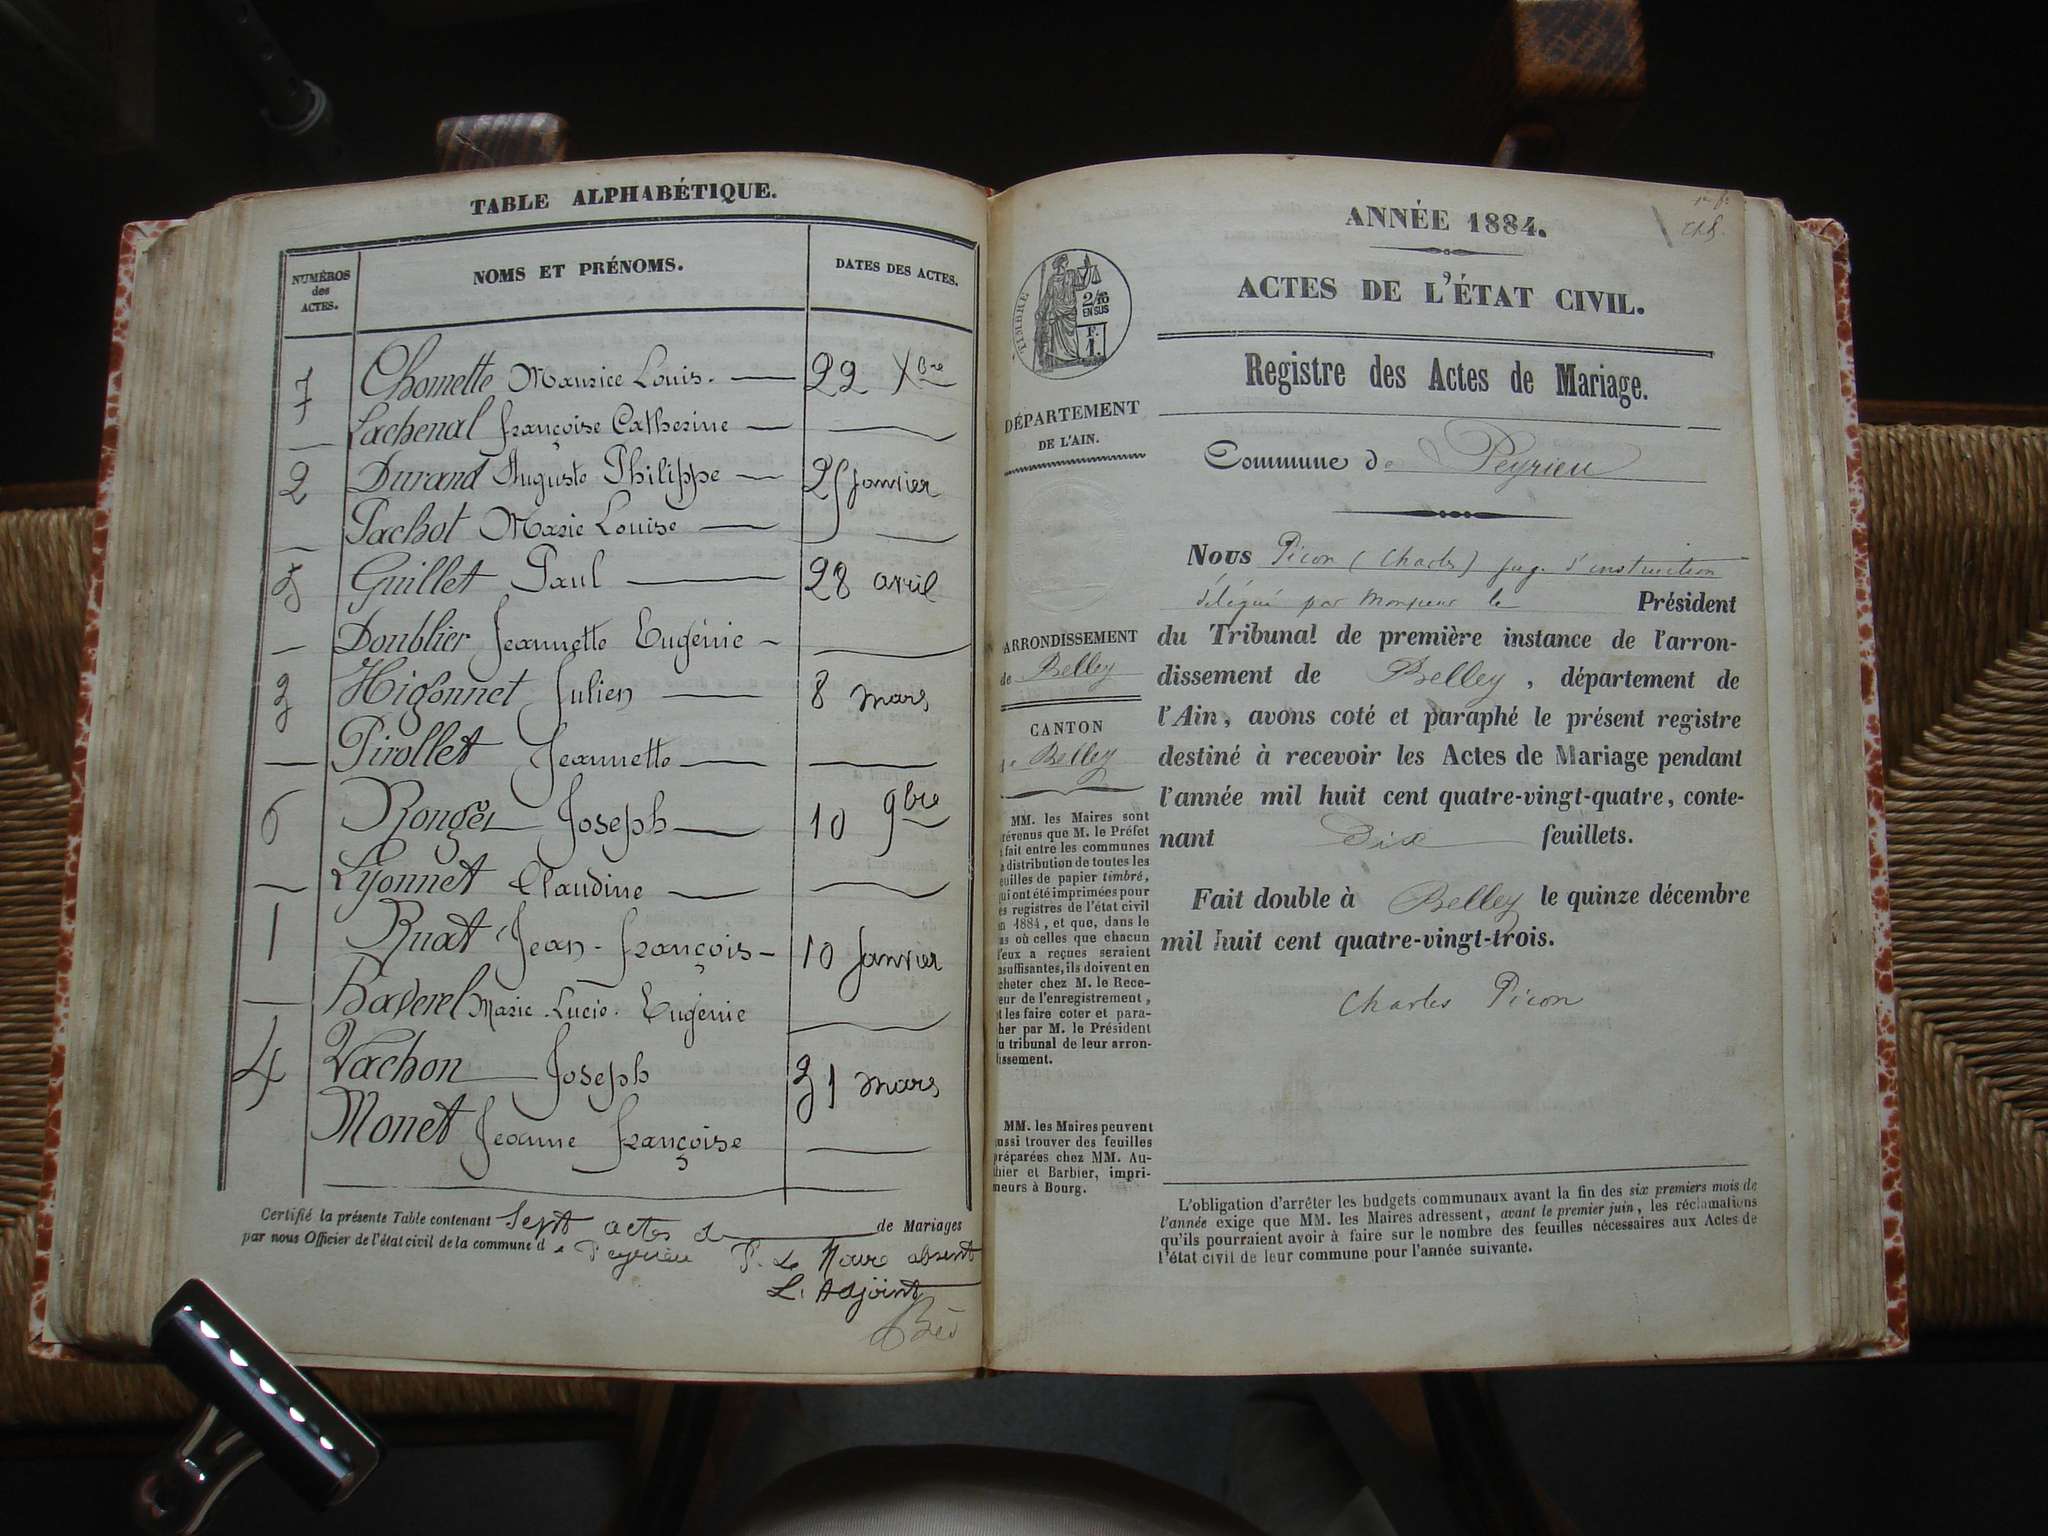 TABLE ALPHABÉTIQUE.
NUMÉROS des ACTES.
NOMS ET PRÉNOMS.
DATES DES ACTES.
7 Chomette Maurice Louis. 22 Xbre
Lachenal françoise Catherine
2 Durand Auguste Philippe 25 Janvier
Pachot Marie Louise
5 Guillet Paul 28 avril
Doublier Jeannette Eugénie
3 Higonnet Julien 8 mars
Pirollet Jeannette
6 Ronger Joseph 10 9bre
Lyonnet Claudine
1 Ruat Jean-françois 10 Janvier
Haverel Marie Lucie Eugénie
4 Vachon Joseph 31 mars
Monet Jeanne françoise
Certifié la présente Table contenant Sept actes d de Mariages
par nous Officier de l'état civil de la commune de Peyrieu P. Le Maire absent
L. Adjoint
ANNÉE 1884.
ACTES DE L'ÉTAT CIVIL.
Registre des Actes de Mariage.
Commune de Peyrieu
TIMBRE
2/10
EN SUS
F.
1.
DÉPARTEMENT
DE L'AIN.
ARRONDISSEMENT
de Belley
CANTON
de Belley
MM. les Maires sont
révenus que M. le Préfet
fait entre les communes
a distribution de toutes les
euilles de papier timbré,
qui ont été imprimées pour
es registres de l'état civil
en 1884, et que, dans le
as où celles que chacun
d'eux a reçues seraient
nsuffisantes, ils doivent en
cheter chez M. le Rece-
eur de l'enregistrement,
t les faire coter et para-
her par M. le Président
u tribunal de leur arron-
issement.
MM. les Maires peuvent
aussi trouver des feuilles
préparées chez MM. Au-
thier et Barbier, impri-
meurs à Bourg.
Nous Picon (Charles) juge d'instruction
délégué par Monsieur le Président
du Tribunal de première instance de l'arron-
dissement de Belley, département de
l'Ain, avons coté et paraphé le présent registre
destiné à recevoir les Actes de Mariage pendant
l'année mil huit cent quatre-vingt-quatre, conte-
nant Dix feuillets.
Fait double à Belley le quinze décembre
mil huit cent quatre-vingt-trois.
Charles Picon
L'obligation d'arrêter les budgets communaux avant la fin des six premiers mois de
l'année exige que MM. les Maires adressent, avant le premier juin, les réclamations
qu'ils pourraient avoir à faire sur le nombre des feuilles nécessaires aux Actes de
l'état civil de leur commune pour l'année suivante.